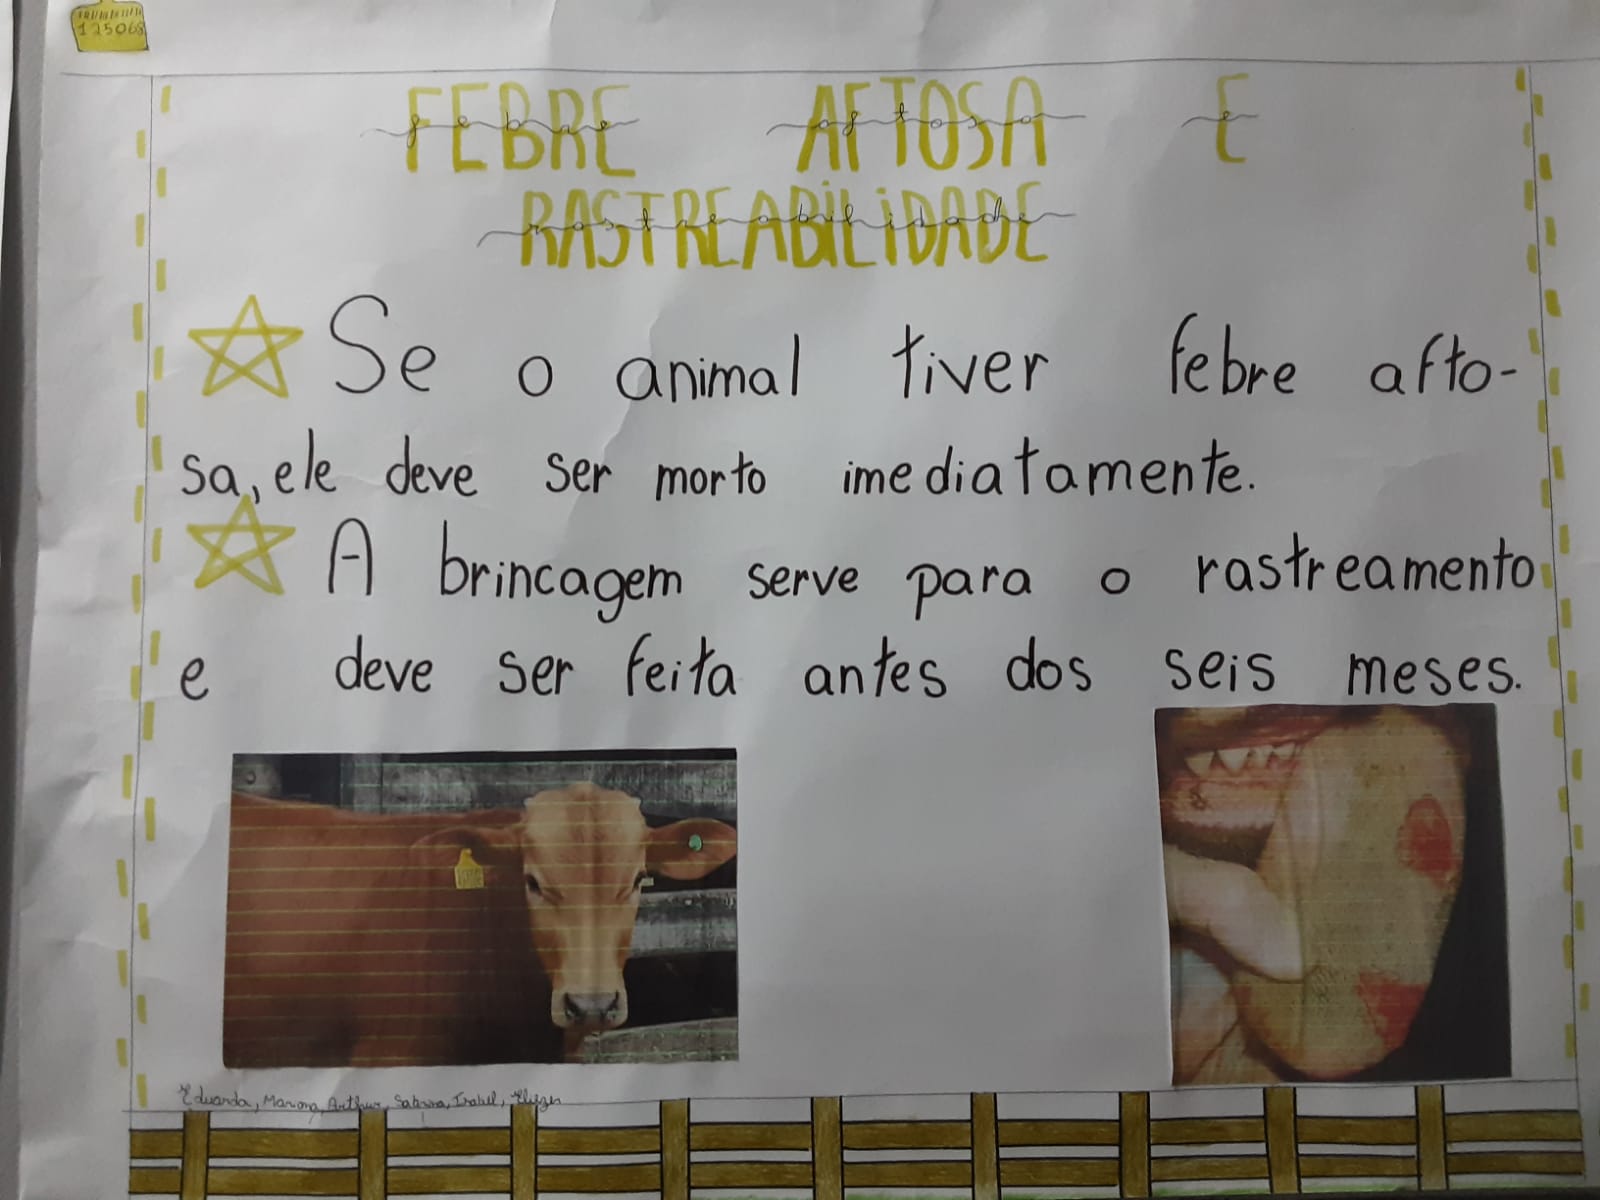 125068
FEBRE AFTOSA E
RASTREABILIDADE
Se o animal tiver febre afto-
sa, ele deve ser morto imediatamente.
A brincagem serve para o rastreamento
e deve ser feita antes dos seis meses.
Eduarda, Arthur, Isabel,